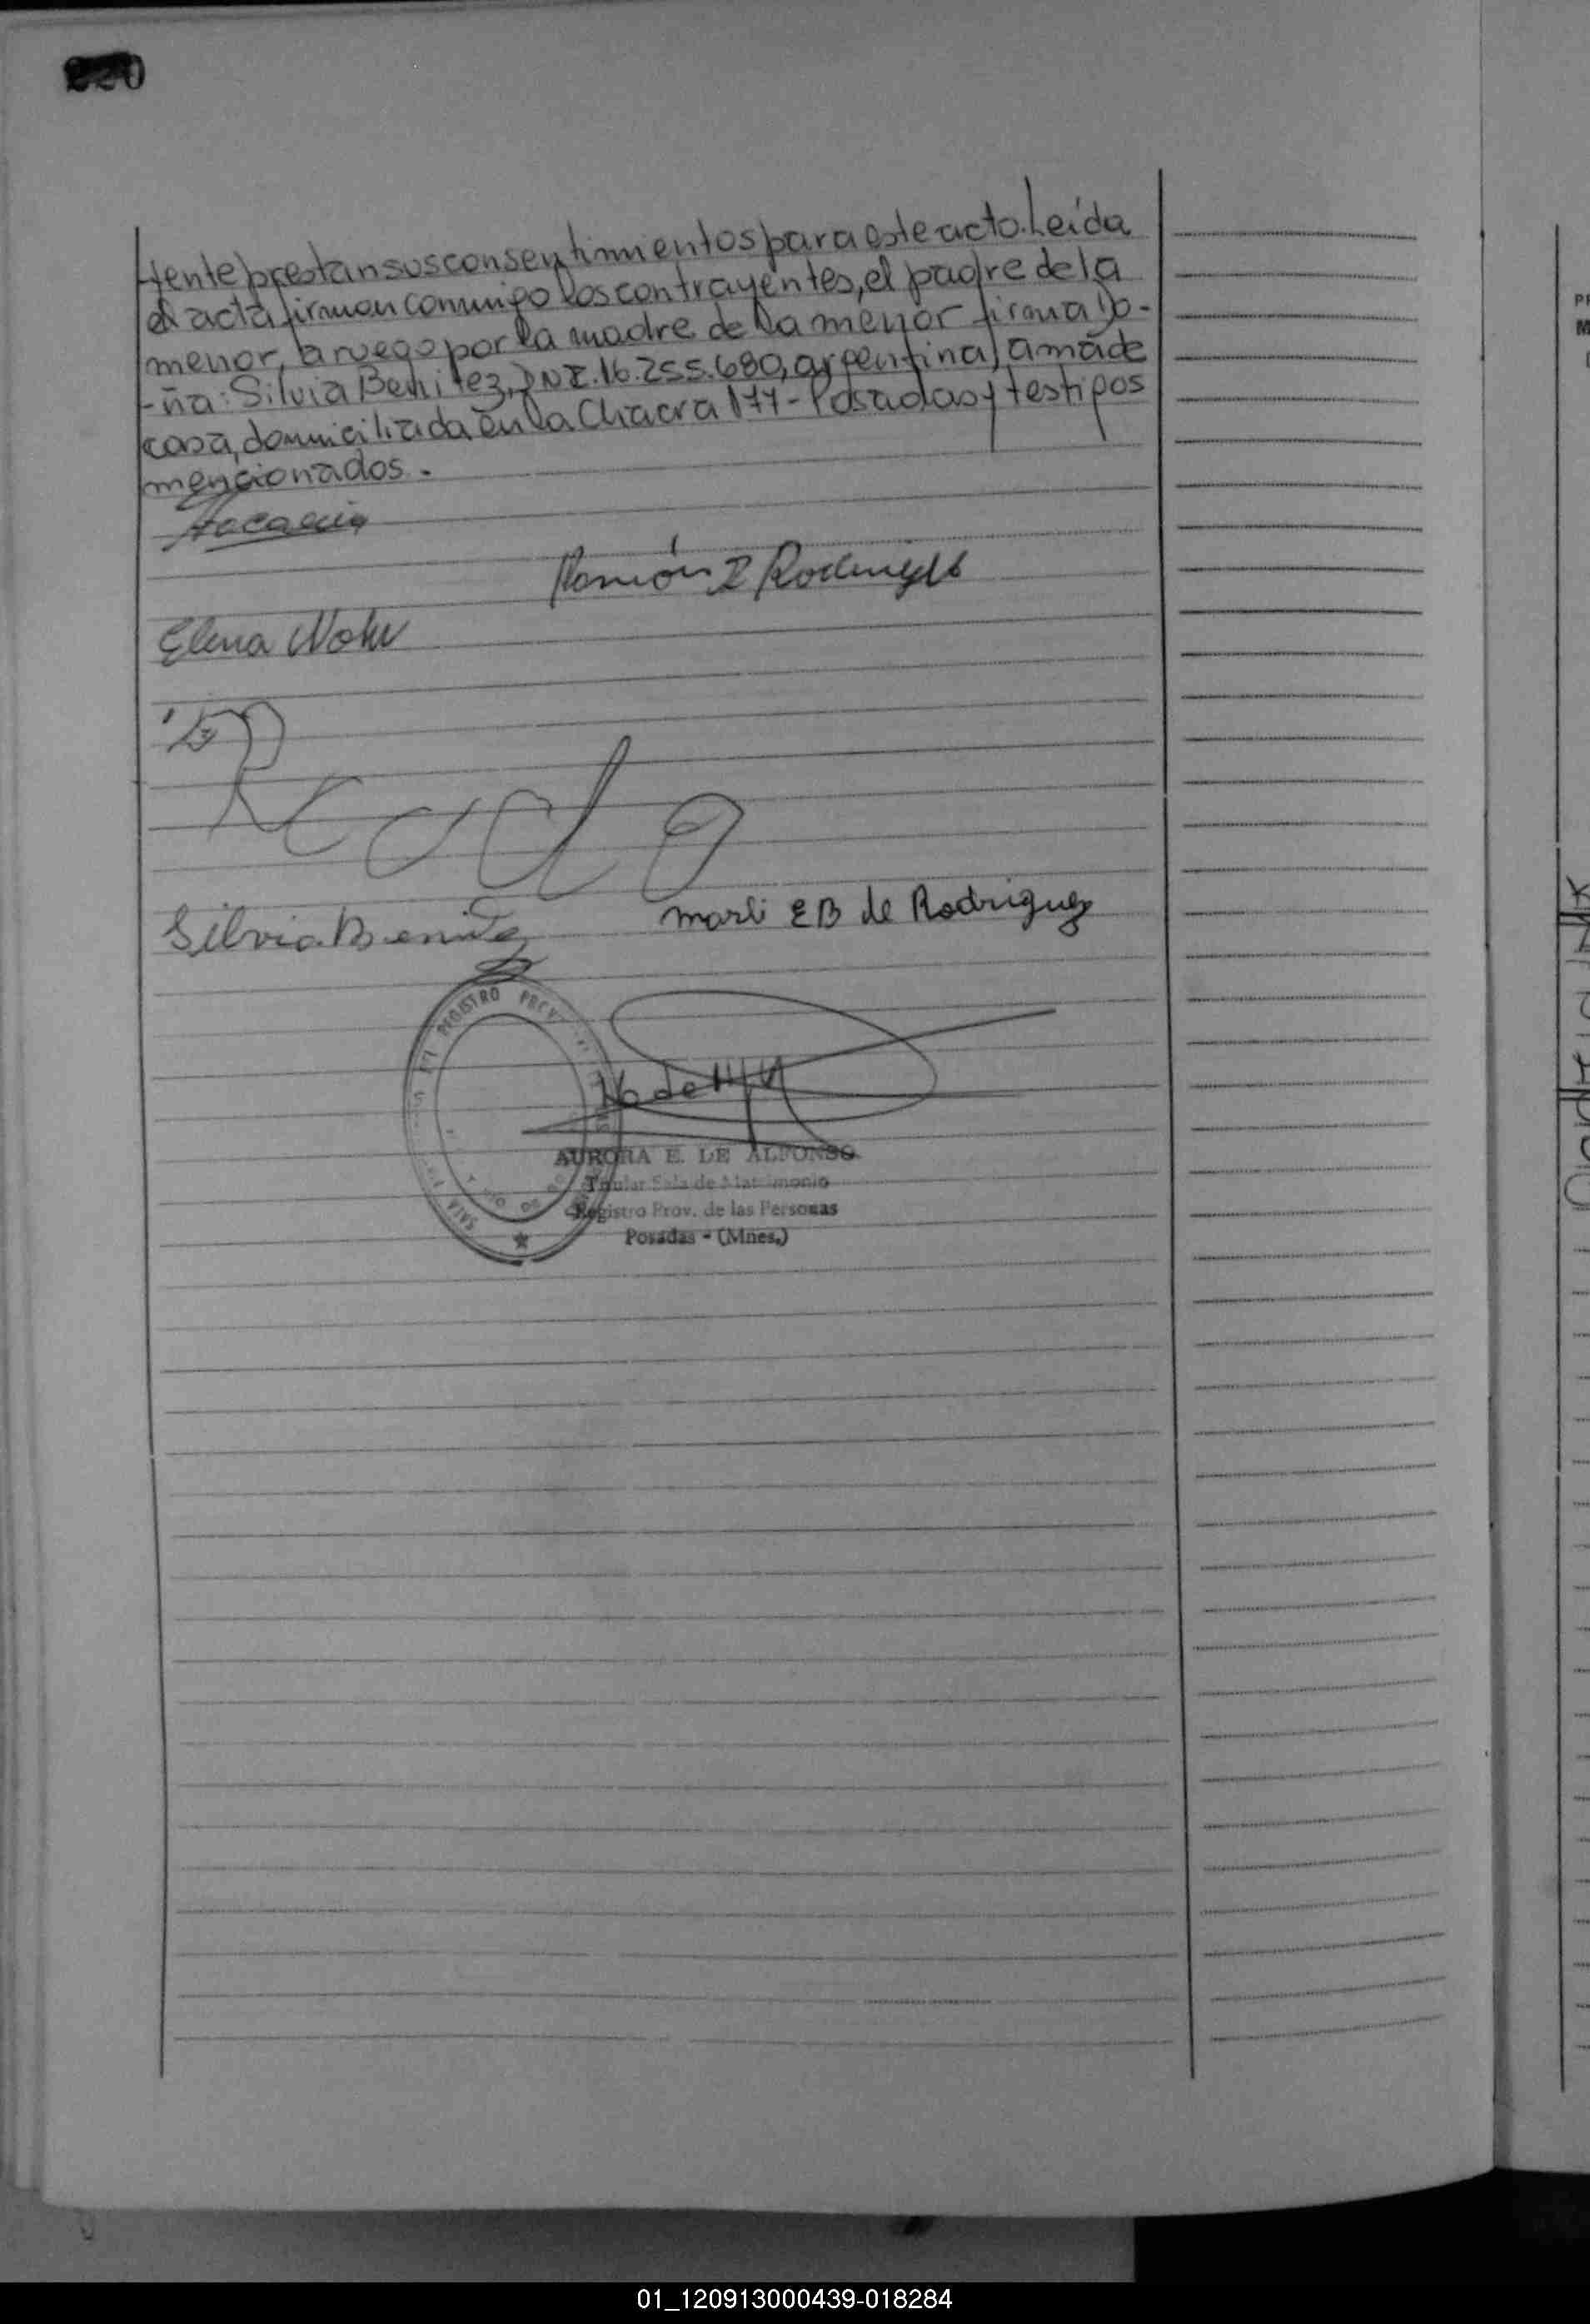 -mente prestan sus consentimientos para este acto. Leída
el acta firman conmigo los contrayentes, el padre de la
menor, a ruego por la madre de la menor firma Do-
-ña: Silvia Benitez, DNI. 16.255.680, argentina, ama de
casa, domiciliada en la Chacra 177 - Posadas y testigos
mencionados.
Ramón I Rodriguez
Elena
Silvia Benitez
Marli EB de Rodriguez
REGISTRO PROV
AURORA E. DE ALFONSO
Titular Sala de Matrimonio
Registro Prov. de las Personas
Posadas - (Mnes.)
01_120913000439-018284